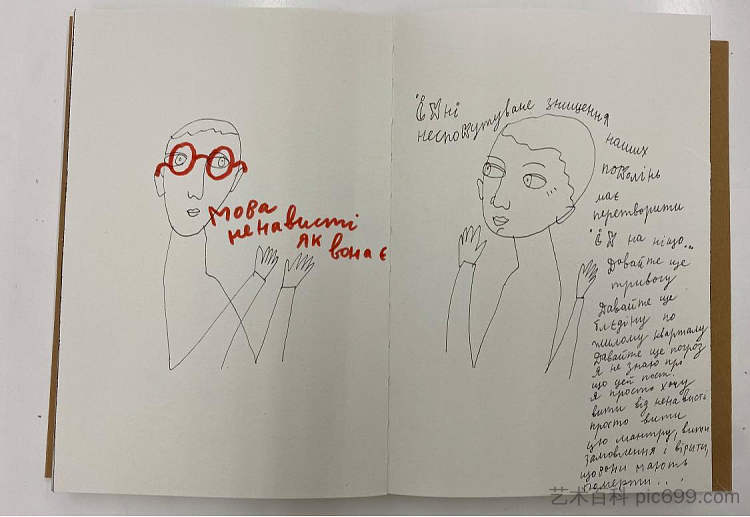 Мова
ненависти
як
вона є
неспокутуване знищення
наших
має
перетворити
на ніщо...
Давайте ще
тривогу
Давайте ще
блєдіну по
жилому кварталу
Давайте ще погроз
я не знаю про
що цей пост.
я просто хочу
вити від ненависті
просто вити
цю мантру, вити
замовлення і вірити,
що вони мають
померти...
艺术百科 pic699.com